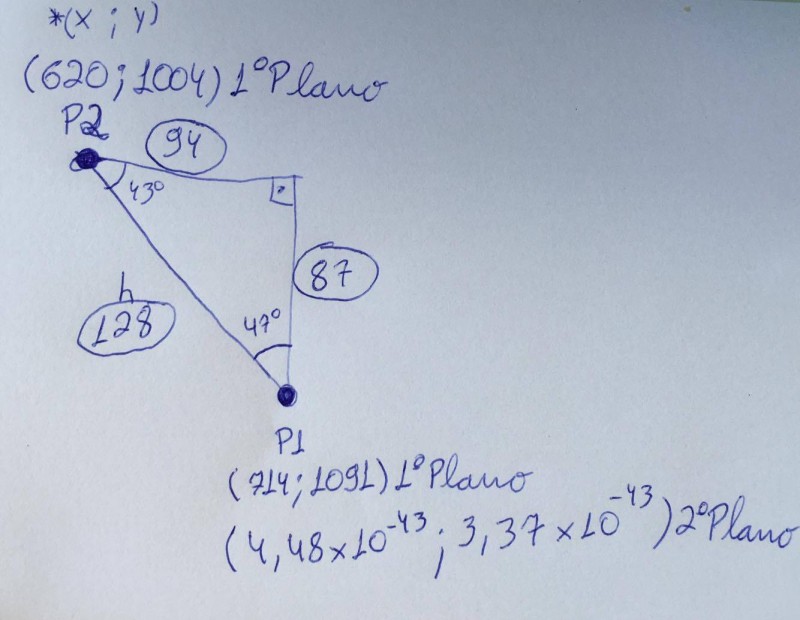 *(x ; y)
(620;1004) 1º Plano
P2
94
43º
87
h
128
47º
P1
(714;1091) 1º Plano
(4,48x10⁻⁴³; 3,37x10⁻⁴³) 2º Plano